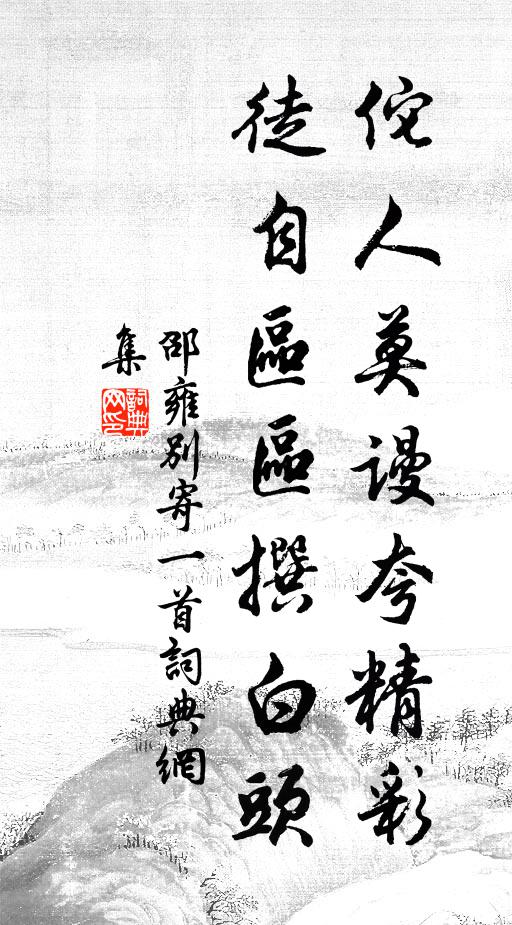 侘人莫謾夸精彩
徒自區區撰白頭
邵雍別寄一首詞典網
集
詞典網印